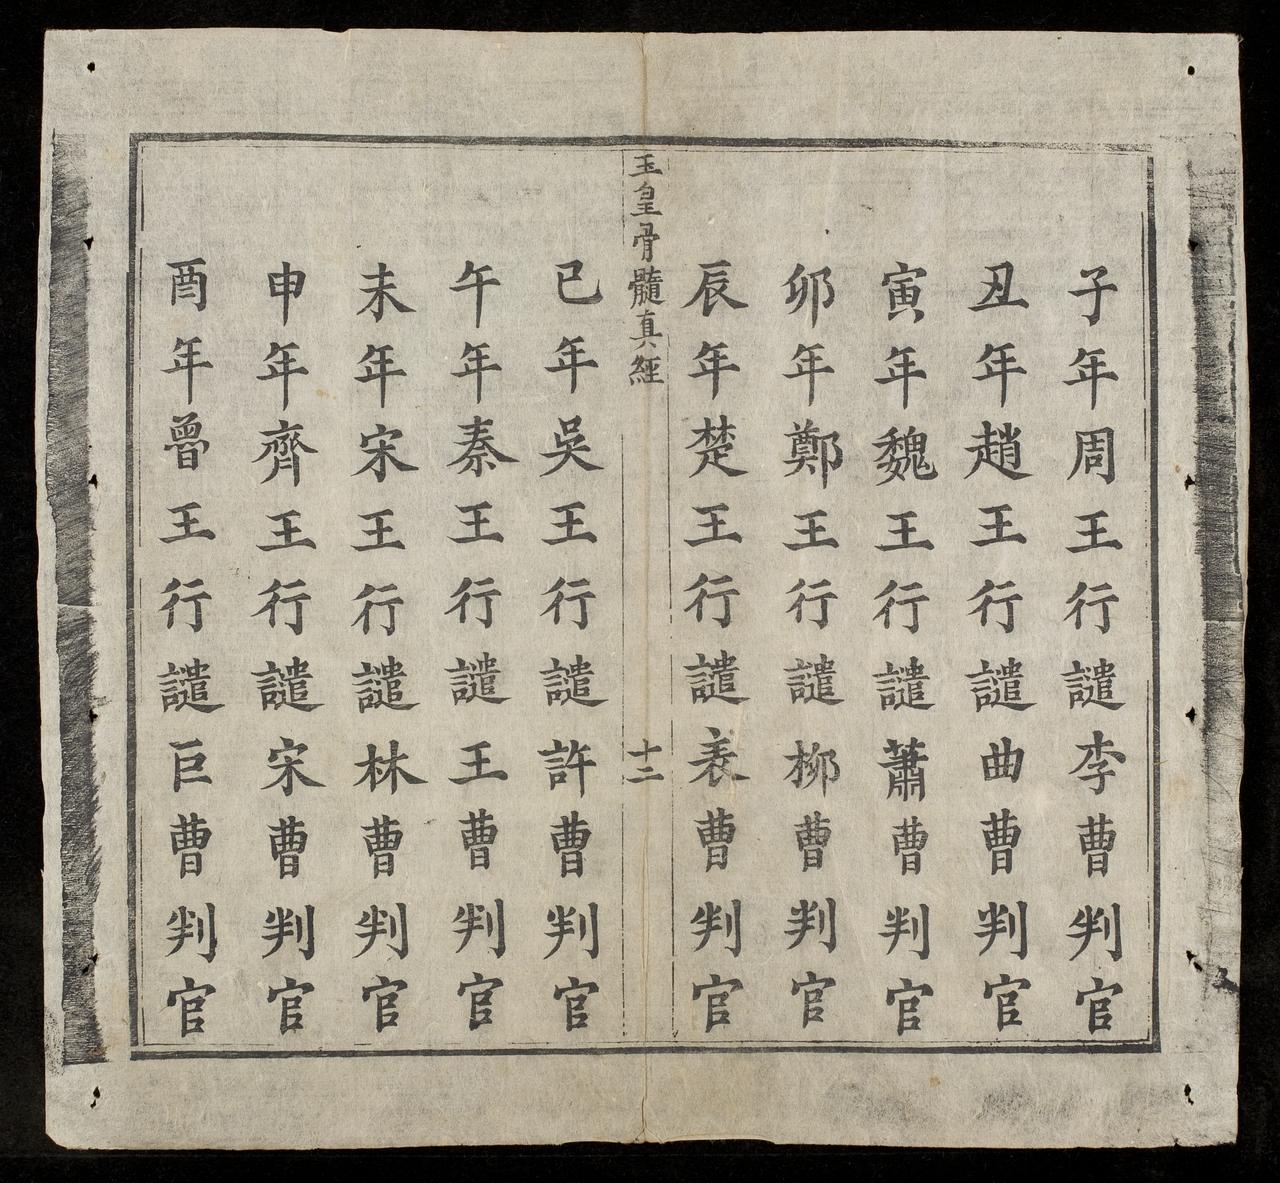 子年周王行譴李曹判官
丑年趙王行譴曲曹判官
寅年魏王行譴蕭曹判官
卯年鄭王行譴柳曹判官
辰年楚王行譴表曹判官
玉皇骨髓真經
十二
巳年吳王行譴許曹判官
午年秦王行譴王曹判官
未年宋王行譴林曹判官
申年齊王行譴宋曹判官
酉年魯王行譴巨曹判官